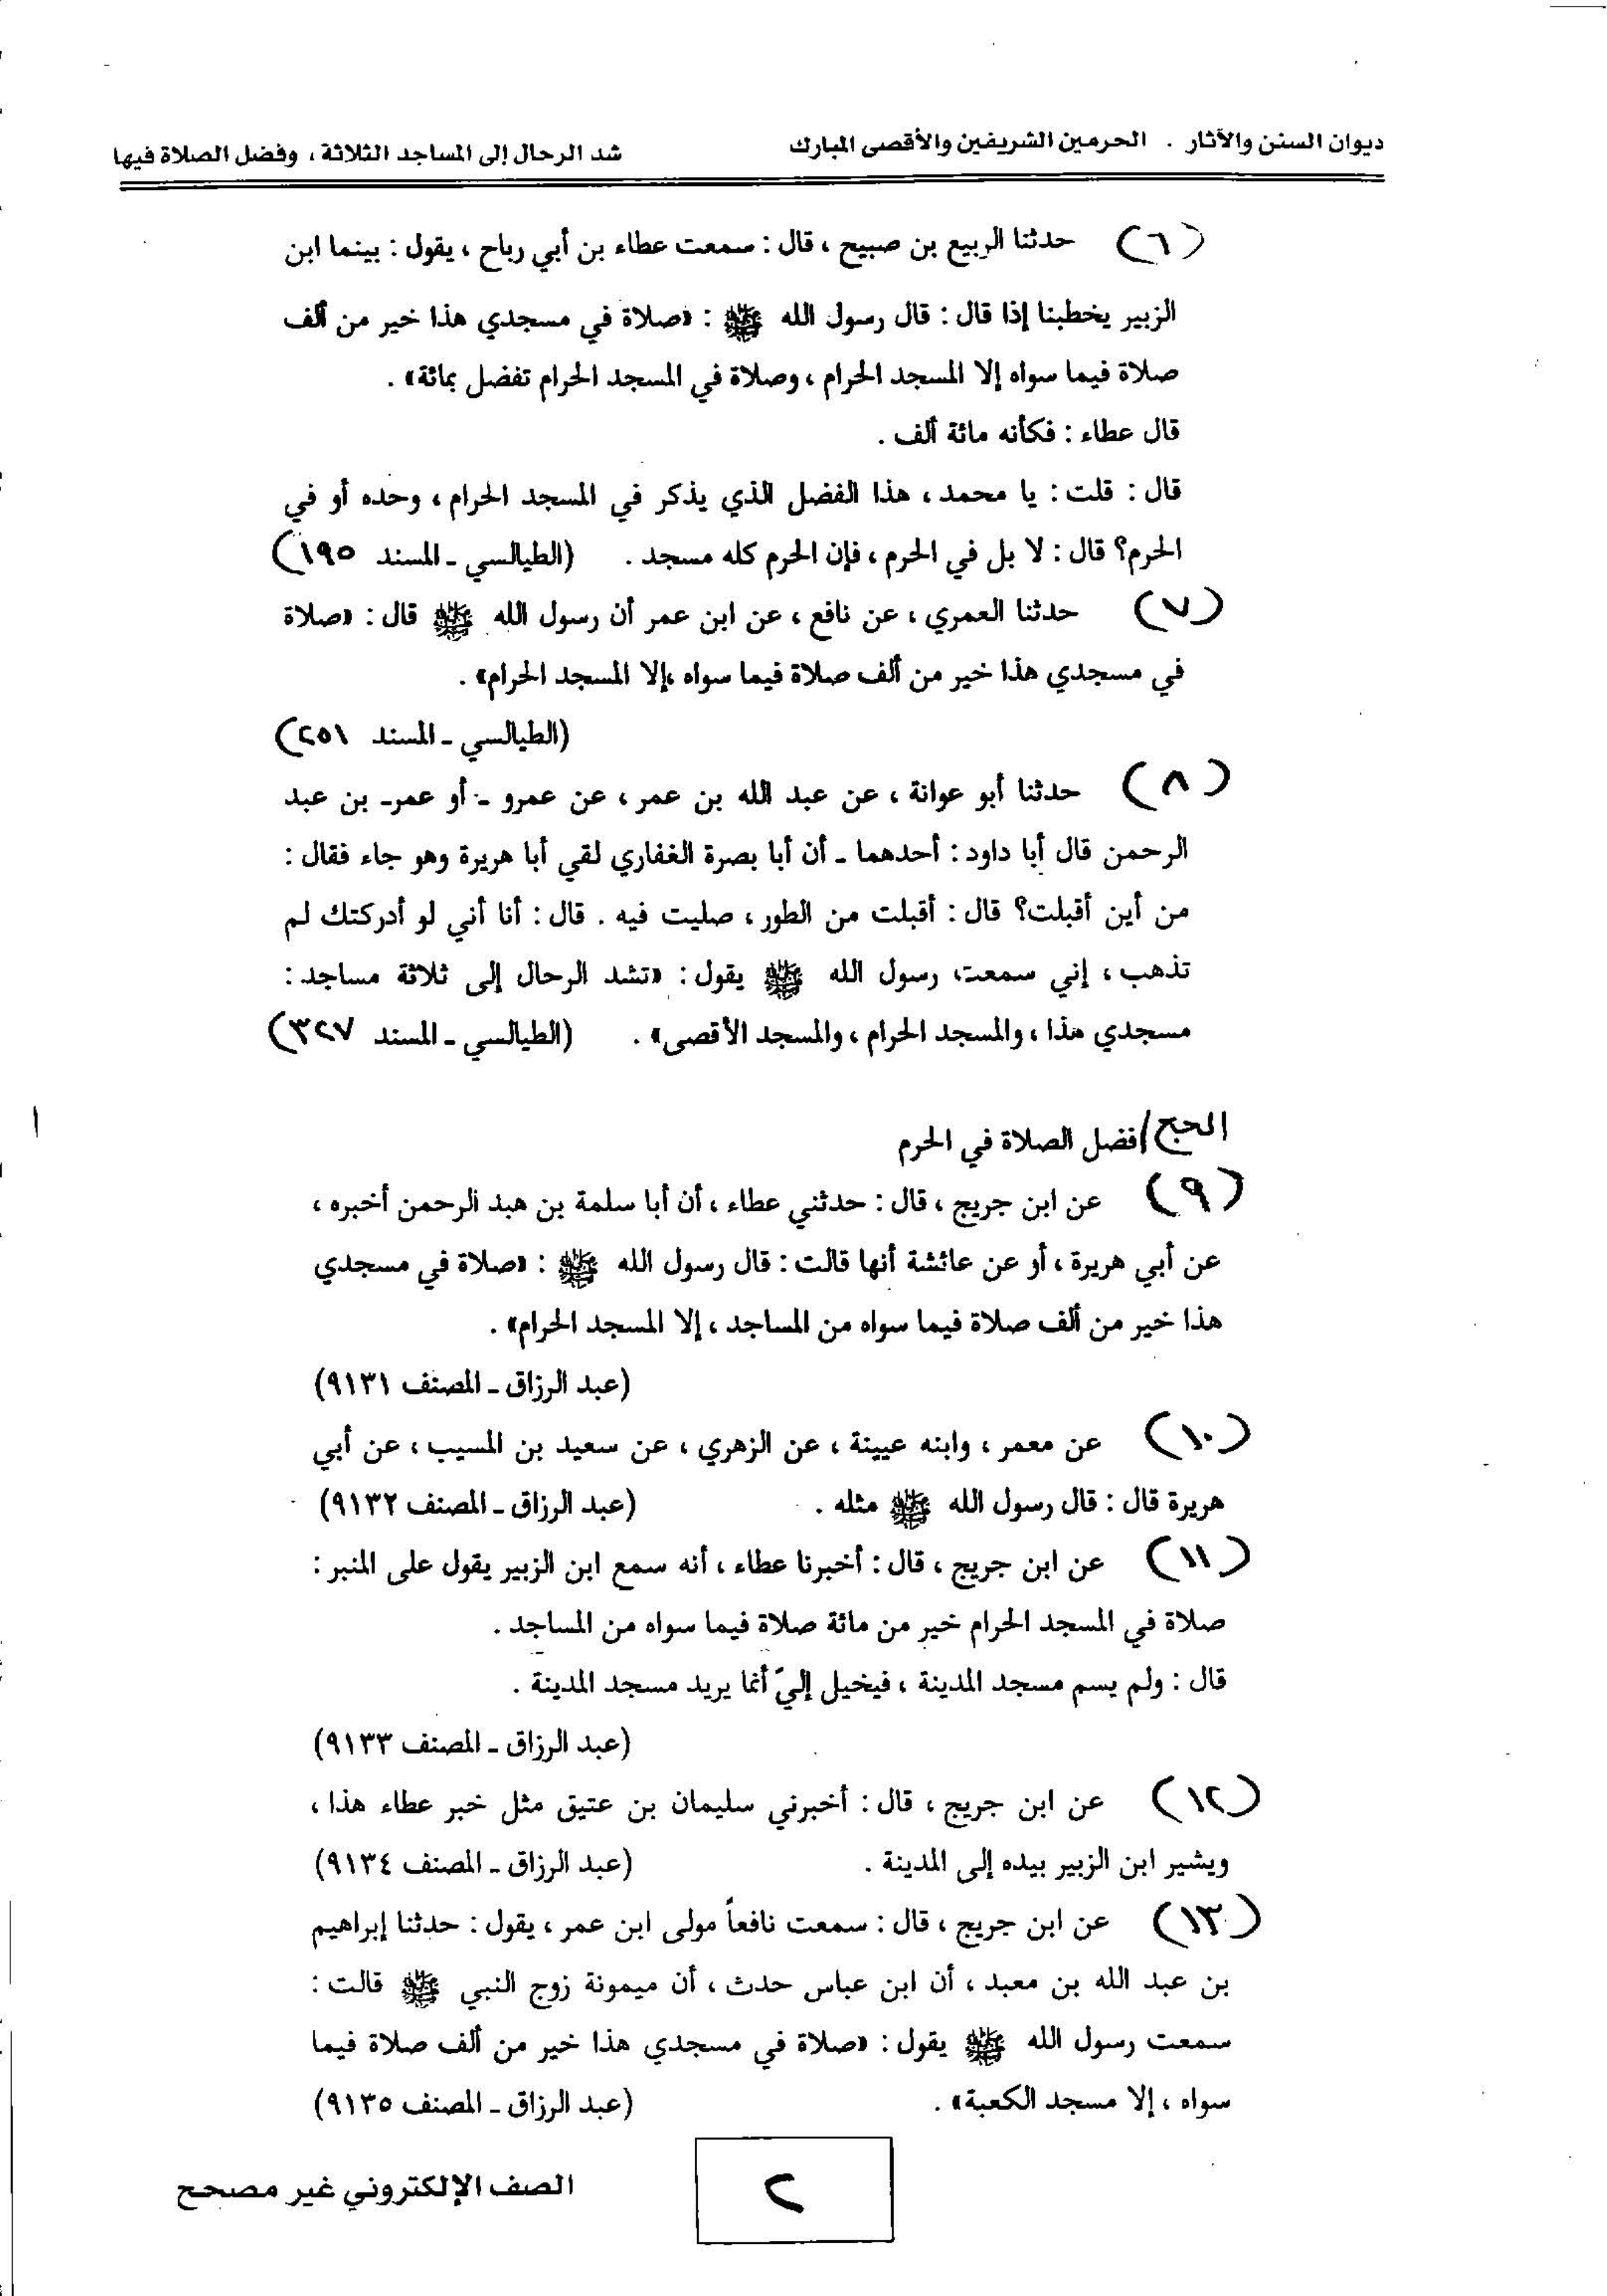 ديوان السنن والآثار . الحرمين الشريفين والأقصى المبارك شد الرحال إلى المساجد الثلاثة ، وفضل الصلاة فيها
(٦) حدثنا الربيع بن صبيح ، قال : سمعت عطاء بن أبي رباح ، يقول : بينما ابن
الزبير يخطبنا إذا قال : قال رسول الله ﷺ : «صلاة في مسجدي هذا خير من ألف
صلاة فيما سواه إلا المسجد الحرام ، وصلاة في المسجد الحرام تفضل بمائة» .
قال عطاء : فكأنه مائة ألف .
قال : قلت : يا محمد ، هذا الفضل الذي يذكر في المسجد الحرام ، وحده أو في
الحرم؟ قال : لا بل في الحرم ، فإن الحرم كله مسجد . (الطيالسي ـ المسند ١٩٥)
(٧) حدثنا العمري ، عن نافع ، عن ابن عمر أن رسول الله ﷺ قال : «صلاة
في مسجدي هذا خير من ألف صلاة فيما سواه ،إلا المسجد الحرام» .
(الطيالسي ـ المسند ٢٥١)
(٨) حدثنا أبو عوانة ، عن عبد الله بن عمر ، عن عمرو ـ أو عمرـ بن عبد
الرحمن قال أبا داود : أحدهما ـ أن أبا بصرة الغفاري لقي أبا هريرة وهو جاء فقال :
من أين أقبلت؟ قال : أقبلت من الطور ، صليت فيه . قال : أنا أني لو أدركتك لم
تذهب ، إني سمعت رسول الله ﷺ يقول : «تشد الرحال إلى ثلاثة مساجد :
مسجدي هذا ، والمسجد الحرام ، والمسجد الأقصى» . (الطيالسي ـ المسند ٣٢٧)
الحج/فضل الصلاة في الحرم
(٩) عن ابن جريج ، قال : حدثني عطاء ، أن أبا سلمة بن هبد الرحمن أخبره ،
عن أبي هريرة ، أو عن عائشة أنها قالت : قال رسول الله ﷺ : «صلاة في مسجدي
هذا خير من ألف صلاة فيما سواه من المساجد ، إلا المسجد الحرام» .
(عبد الرزاق ـ المصنف ٩١٣١)
(١٠) عن معمر ، وابنه عيينة ، عن الزهري ، عن سعيد بن المسيب ، عن أبي
هريرة قال : قال رسول الله ﷺ مثله . (عبد الرزاق ـ المصنف ٩١٣٢)
(١١) عن ابن جريج ، قال : أخبرنا عطاء ، أنه سمع ابن الزبير يقول على المنبر :
صلاة في المسجد الحرام خير من مائة صلاة فيما سواه من المساجد .
قال : ولم يسم مسجد المدينة ، فيخيل إليّ أنما يريد مسجد المدينة .
(عبد الرزاق ـ المصنف ٩١٣٣)
(١٢) عن ابن جريج ، قال : أخبرني سليمان بن عتيق مثل خبر عطاء هذا ،
ويشير ابن الزبير بيده إلى المدينة . (عبد الرزاق ـ المصنف ٩١٣٤)
(١٣) عن ابن جريج ، قال : سمعت نافعاً مولى ابن عمر ، يقول : حدثنا إبراهيم
بن عبد الله بن معبد ، أن ابن عباس حدث ، أن ميمونة زوج النبي ﷺ قالت :
سمعت رسول الله ﷺ يقول : «صلاة في مسجدي هذا خير من ألف صلاة فيما
سواه ، إلا مسجد الكعبة» . (عبد الرزاق ـ المصنف ٩١٣٥)
٢
الصف الإلكتروني غير مصحح